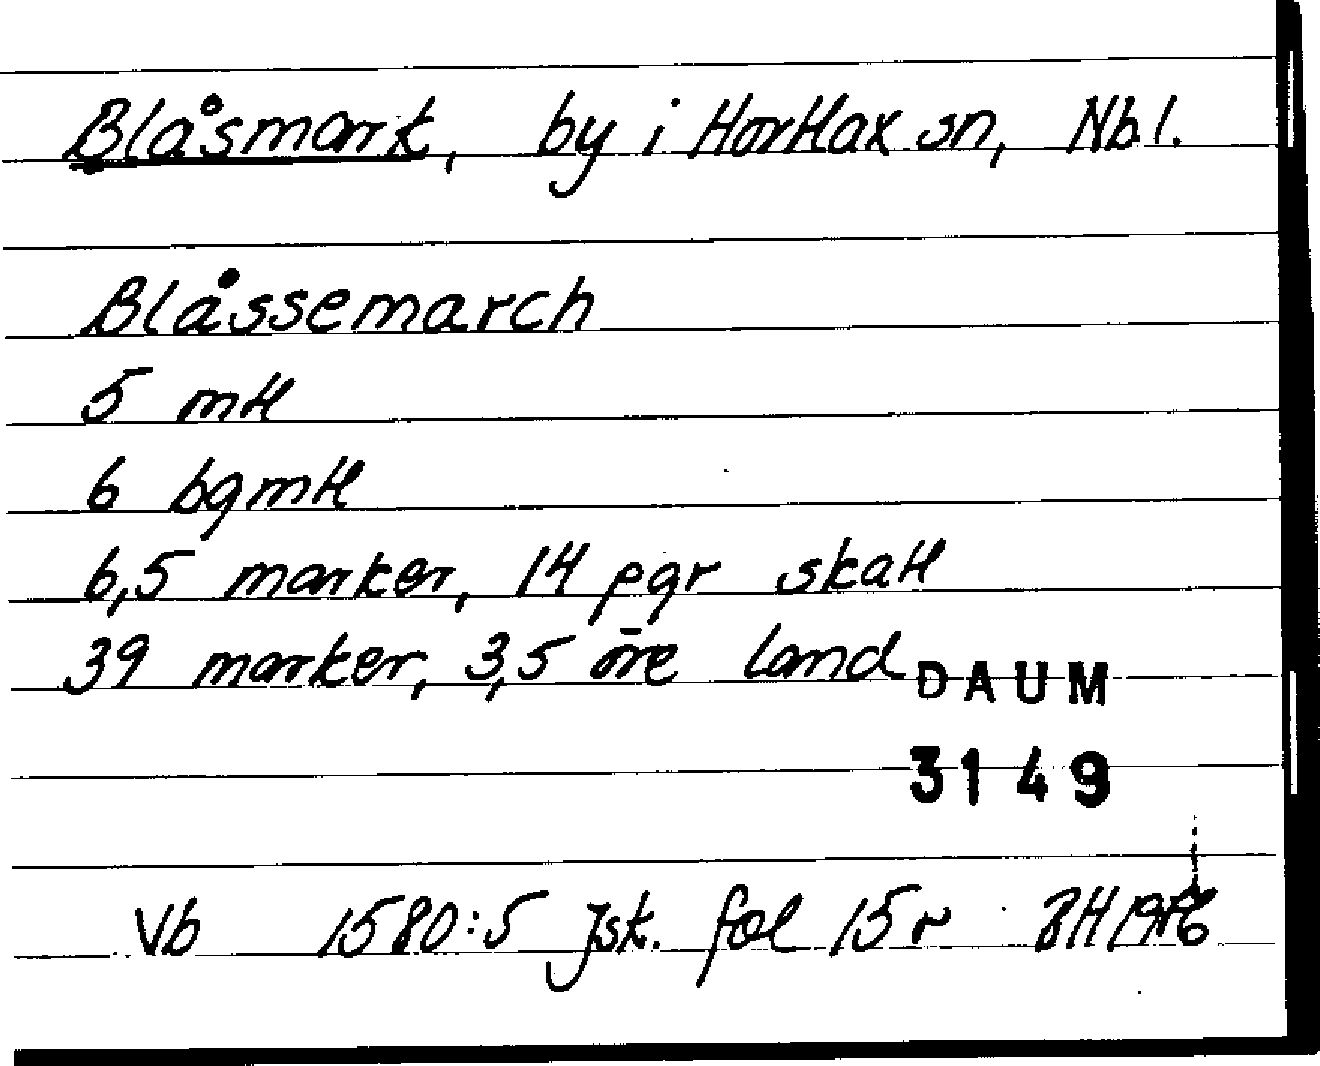 Blåsmark, by i Hortlax sn, Nbl.
Blåssemarch
5 mtl
6 bgmtl
6,5 marker, 14 pgr skatt
39 marker, 3,5 öre land
DAUM
3149
Vb 1580:5 Jsk. fol 15 r BH